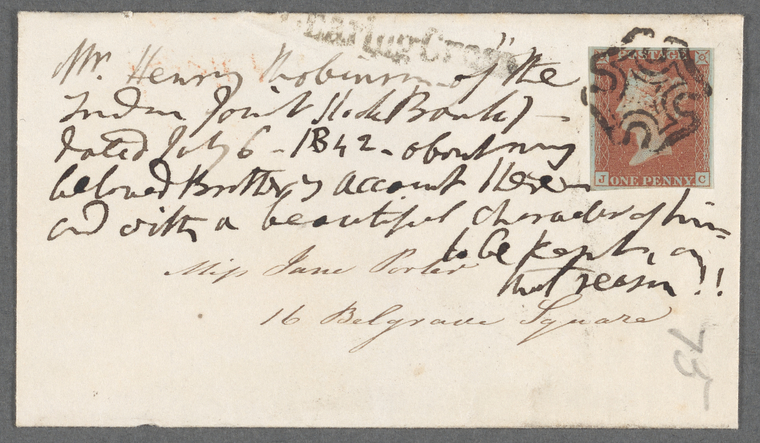 Charing Cross
POSTAGE
J C
ONE PENNY
Mr. Henry Robinson of "the
London Joint Stock Bank" -
dated July 6 - 1842 - about my
beloved Brother's account there -
and with a beautiful character of him -
to be kept, on
that reason!!
Miss Jane Porter
16 Belgrave Square
75